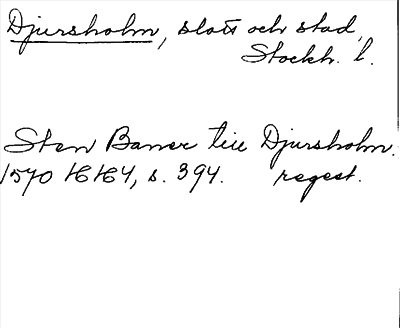 Djursholm, slott och stad,
Stockh. l.
Sten Baner till Djursholm.
1570 16164, s. 394. regest.